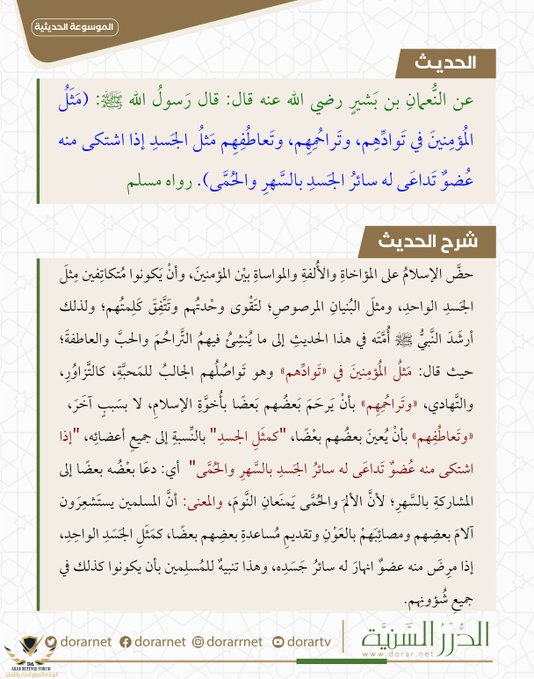 الموسوعة الحديثية
الحديث
عن النُّعمانِ بن بَشيرٍ رضي الله عنه قال: قال رَسولُ الله ﷺ: (مَثَلُ
المُؤمِنينَ في تَوادِّهِم، وتَراحُمِهِم، وتَعاطُفِهِم مَثلُ الجَسدِ إذا اشتكى منه
عُضوٌ تَداعَى له سائرُ الجَسدِ بالسَّهرِ والحُمَّى). رواه مسلم
شرح الحديث
حضَّ الإسلامُ على المؤاخاةِ والأُلفةِ والمواساةِ بيْن المؤمنينَ، وأنْ يَكونوا مُتكاتِفين مِثلَ
الجَسدِ الواحدِ، ومثلَ البُنيانِ المرصوصِ؛ لتَقْوى وحْدتُهم وتَتَّفِقَ كَلِمتُهم؛ ولذلك
أرشَدَ النَّبيُّ ﷺ أُمَّتَه في هذا الحديثِ إلى ما يُنشِئُ فيهمُ التَّراحُمَ والحبَّ والعاطفةَ؛
حيث قال: مَثلُ المُؤمِنينَ في «تَوادِّهم» وهو تَواصُلُهم الجالبُ للمَحبَّةِ، كالتَّزاوُرِ،
والتَّهادي، «وتَراحُمِهم» بأنْ يَرحَمَ بَعضُهم بَعضًا بأُخوَّةِ الإسلامِ، لا بسَببٍ آخَرَ،
«وتَعاطُفِهم» بأنْ يُعينَ بعضُهم بعْضًا، "كمثَلِ الجسدِ" بالنِّسبةِ إلى جميعِ أعضائِه، "إذا
اشتكى منه عُضوٌ تَداعَى له سائرُ الجَسدِ بالسَّهرِ والحُمَّى" أي: دعَا بعْضُه بعضًا إلى
المشاركةِ بالسَّهرِ؛ لأنَّ الألمَ والحُمَّى يَمنَعانِ النَّومَ، والمعنى: أنَّ المسلمين يستَشعِرَون
آلامَ بعضِهم ومصائِبَهم بالعَوْنِ وتقديمِ مُساعدةِ بعضِهم بعضًا، كمَثَلِ الجَسَدِ الواحدِ،
إذا مرِضَ منه عضوٌ انهارَ له سائرُ جَسَدِه، وهذا تنبيهٌ للمُسلِمين بأن يكونوا كذلك في
جميعِ شُؤونِهم.
dorarnet dorarnet dorarrnet dorartv
الدُّرَرُ السَّنِيَّة
www.dorar.net
ARAB DEFENSE FORUM